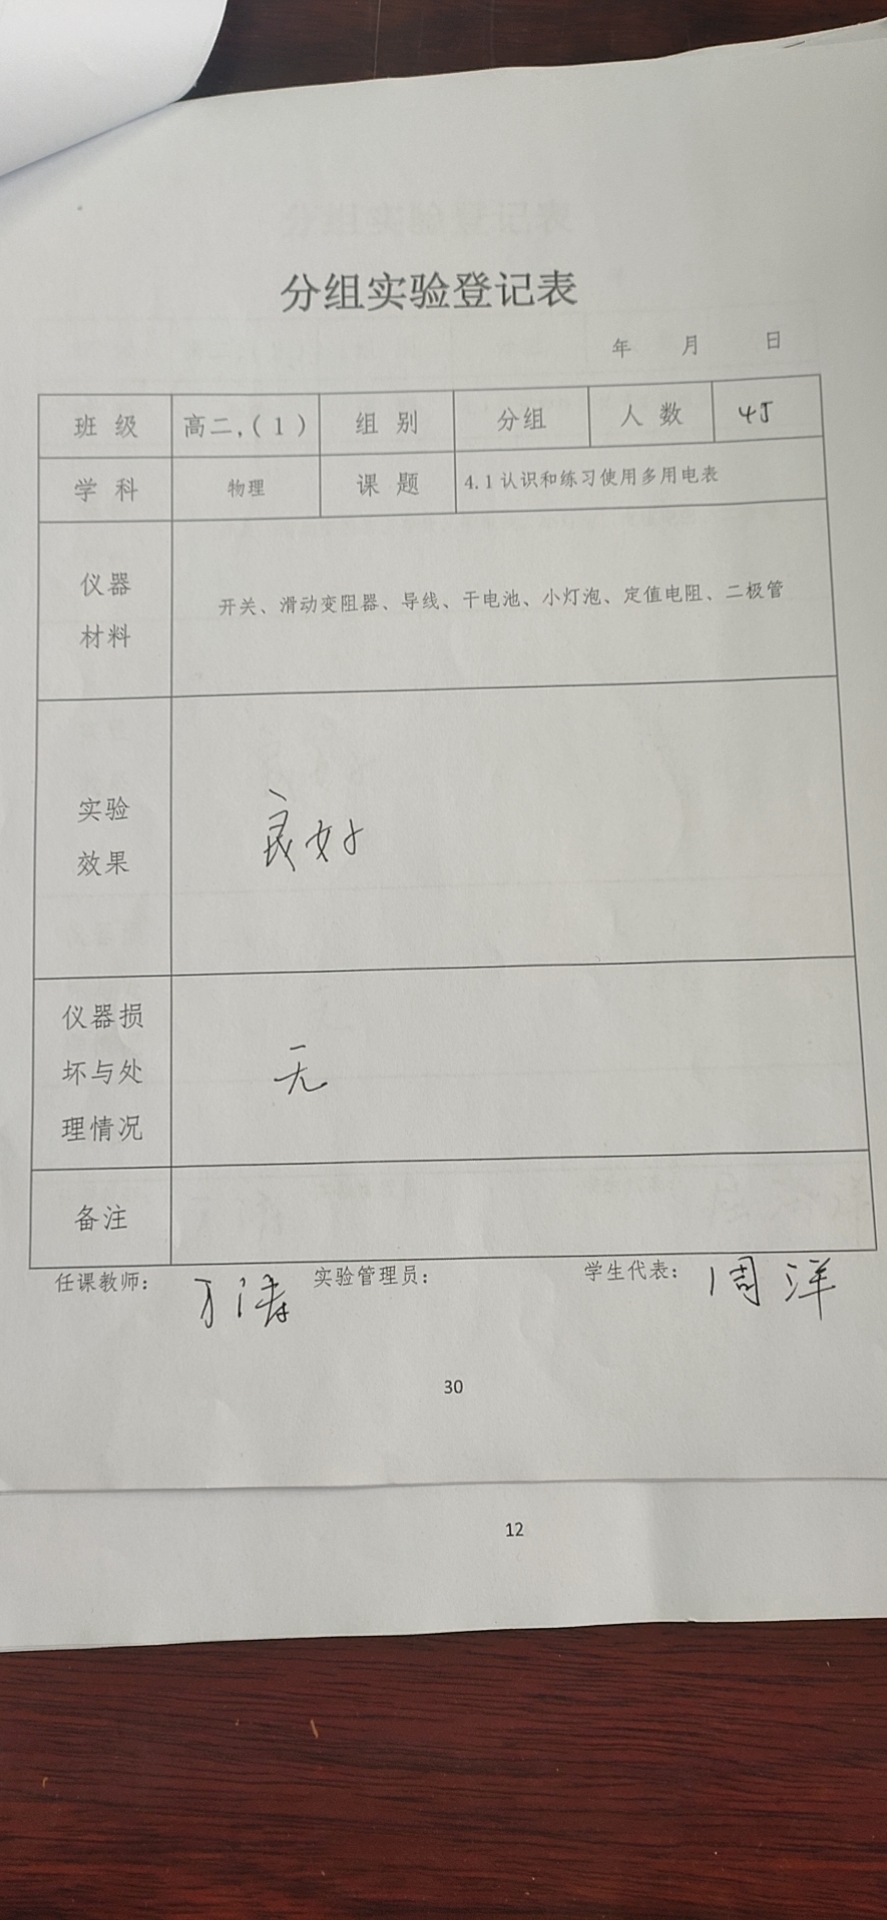 分组实验登记表
年 月 日
班 级 高二,(1) 组 别 分组 人 数 45
学 科 物理 课 题 4.1认识和练习使用多用电表
仪器
材料
开关、滑动变阻器、导线、干电池、小灯泡、定值电阻、二极管
实验
效果
良好
仪器损
坏与处
理情况
无
备注
任课教师: 万涛 实验管理员: 学生代表: 周洋
30
12